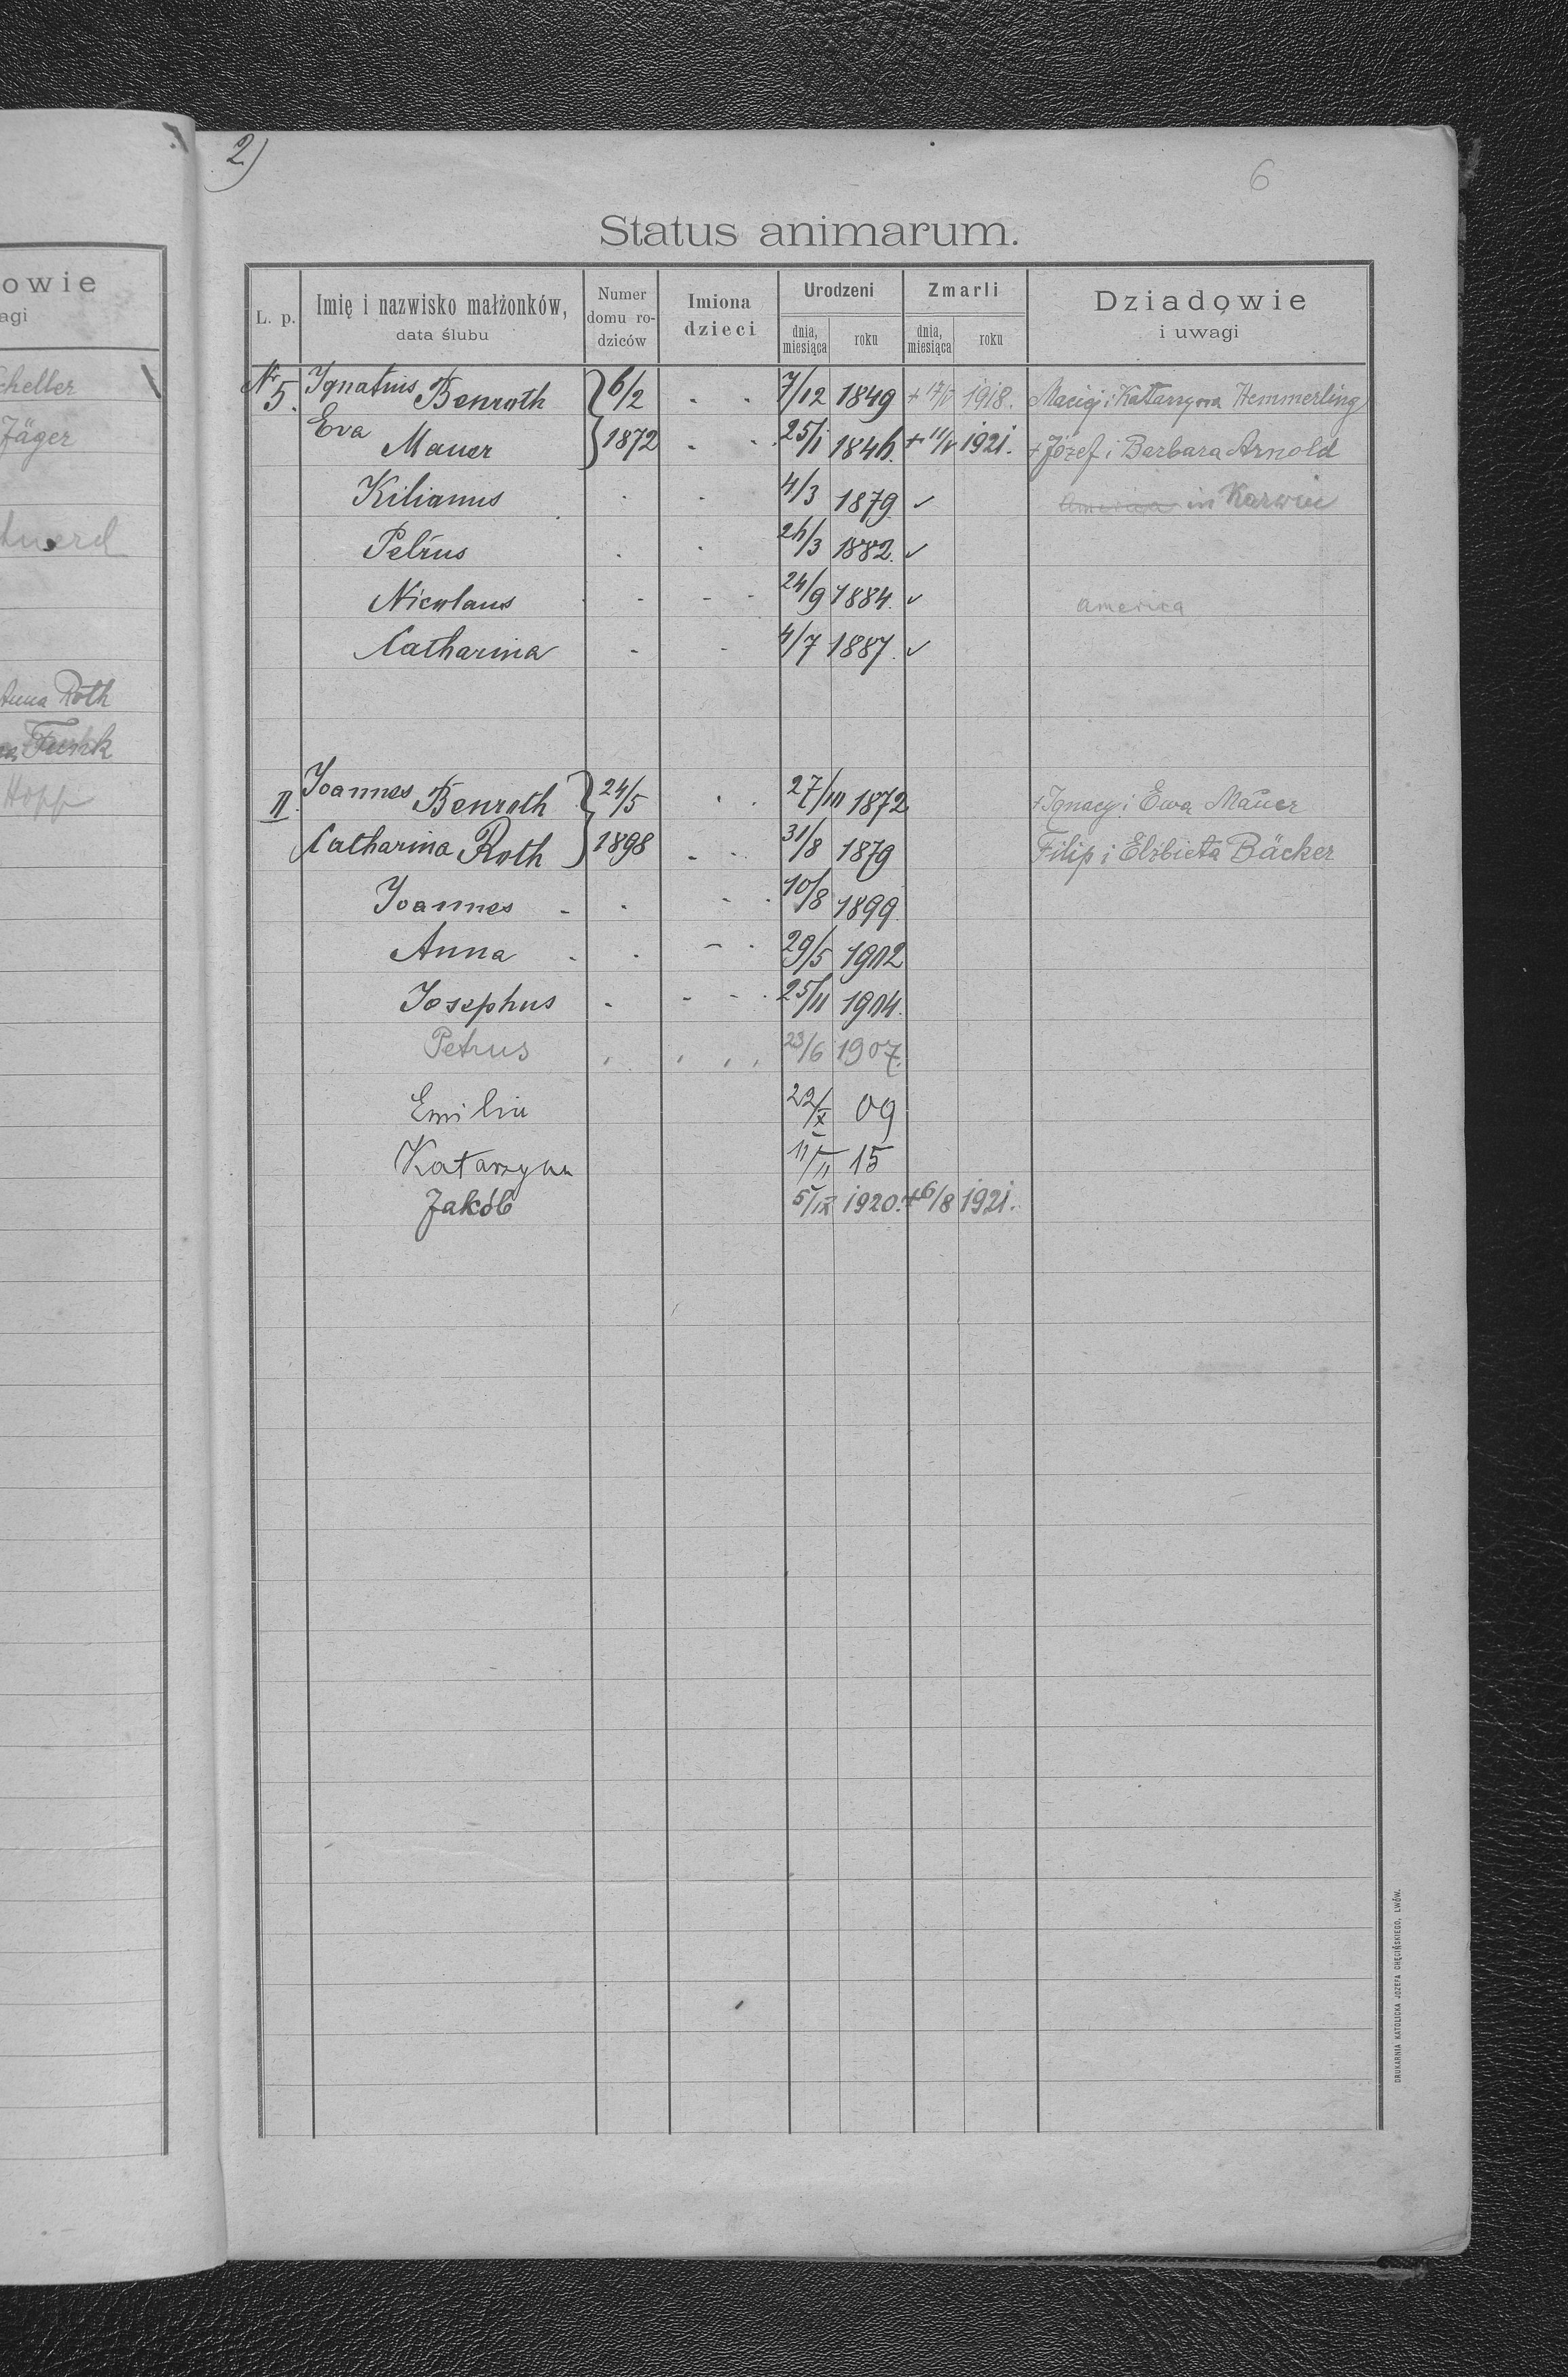 owie
agi
cheller
Jäger
Anna Roth
Funk
Hopp
2)
6
Status animarum.
L. p. Imię i nazwisko małżonków, data ślubu Numer domu rodziców Imiona dzieci Urodzeni dnia, miesiąca roku Zmarli dnia, miesiąca roku Dziadowie i uwagi
Nr 5. Ignatius Benroth 6/2 7/12 1849 + 1918. Maciej i Katarzyna Hemmerling
Eva Mauer 1872 25/I 1846. + 11/V 1921. + Józef i Barbara Arnold
Kilianus 4/3 1879 ✓ America in Karwin
Petrus 26/3 1882. ✓
Nicolaus 24/9 1884. ✓ America
Catharina 4/7 1887. ✓
II. Joannes Benroth 24/5 27/III 1872 + Ignacy i Ewa Mauer
Catharina Roth 1898 31/8 1879 Filip i Elżbieta Bäcker
Joannes 10/8 1899
Anna 29/5 1902
Josephus 25/11 1904.
Petrus 23/6 1907.
Emilia 22/X 09
Katarzyna 15
Jakób 5/IX 1920. + 6/8 1921.
DRUKARNIA KATOLICKA JÓZEFA CHĘCIŃSKIEGO, LWÓW.